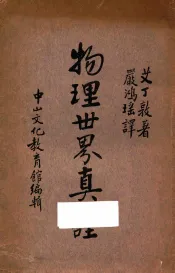 艾丁敦著
嚴鴻瑤譯
物理世界真
中山文化教育館編輯